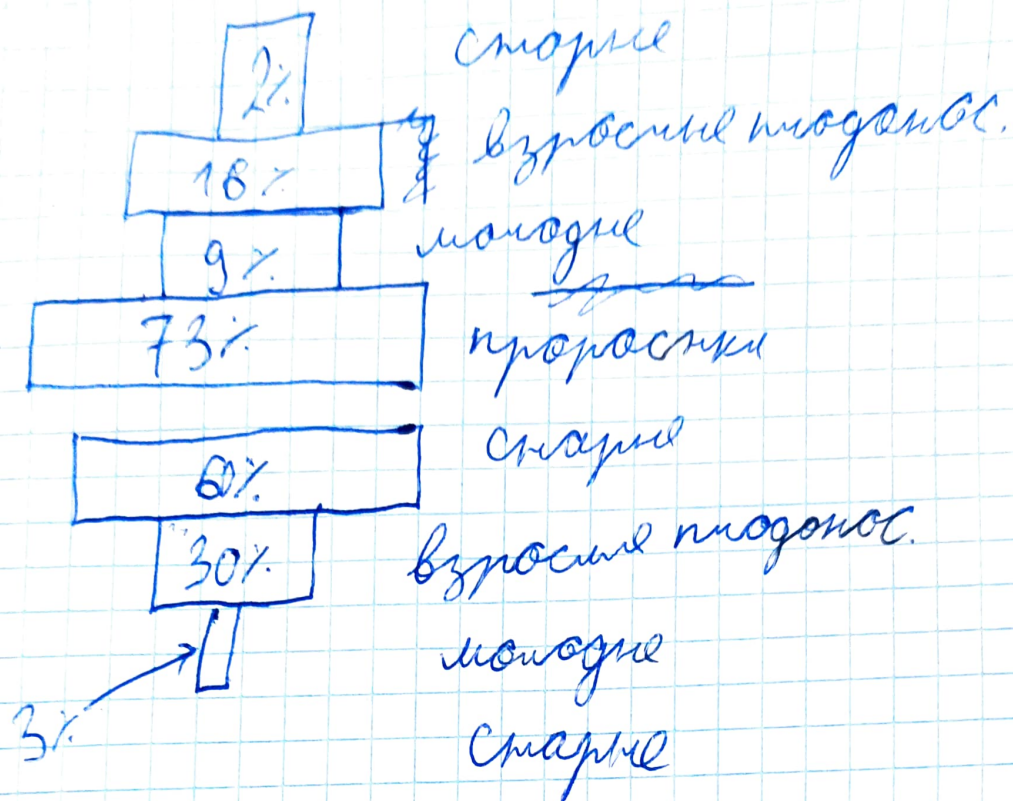 2% старые
18% взрослые плодонос.
9% молодые
73% проростки
60% старые
30% взрослые плодонос.
молодые
3%
старые